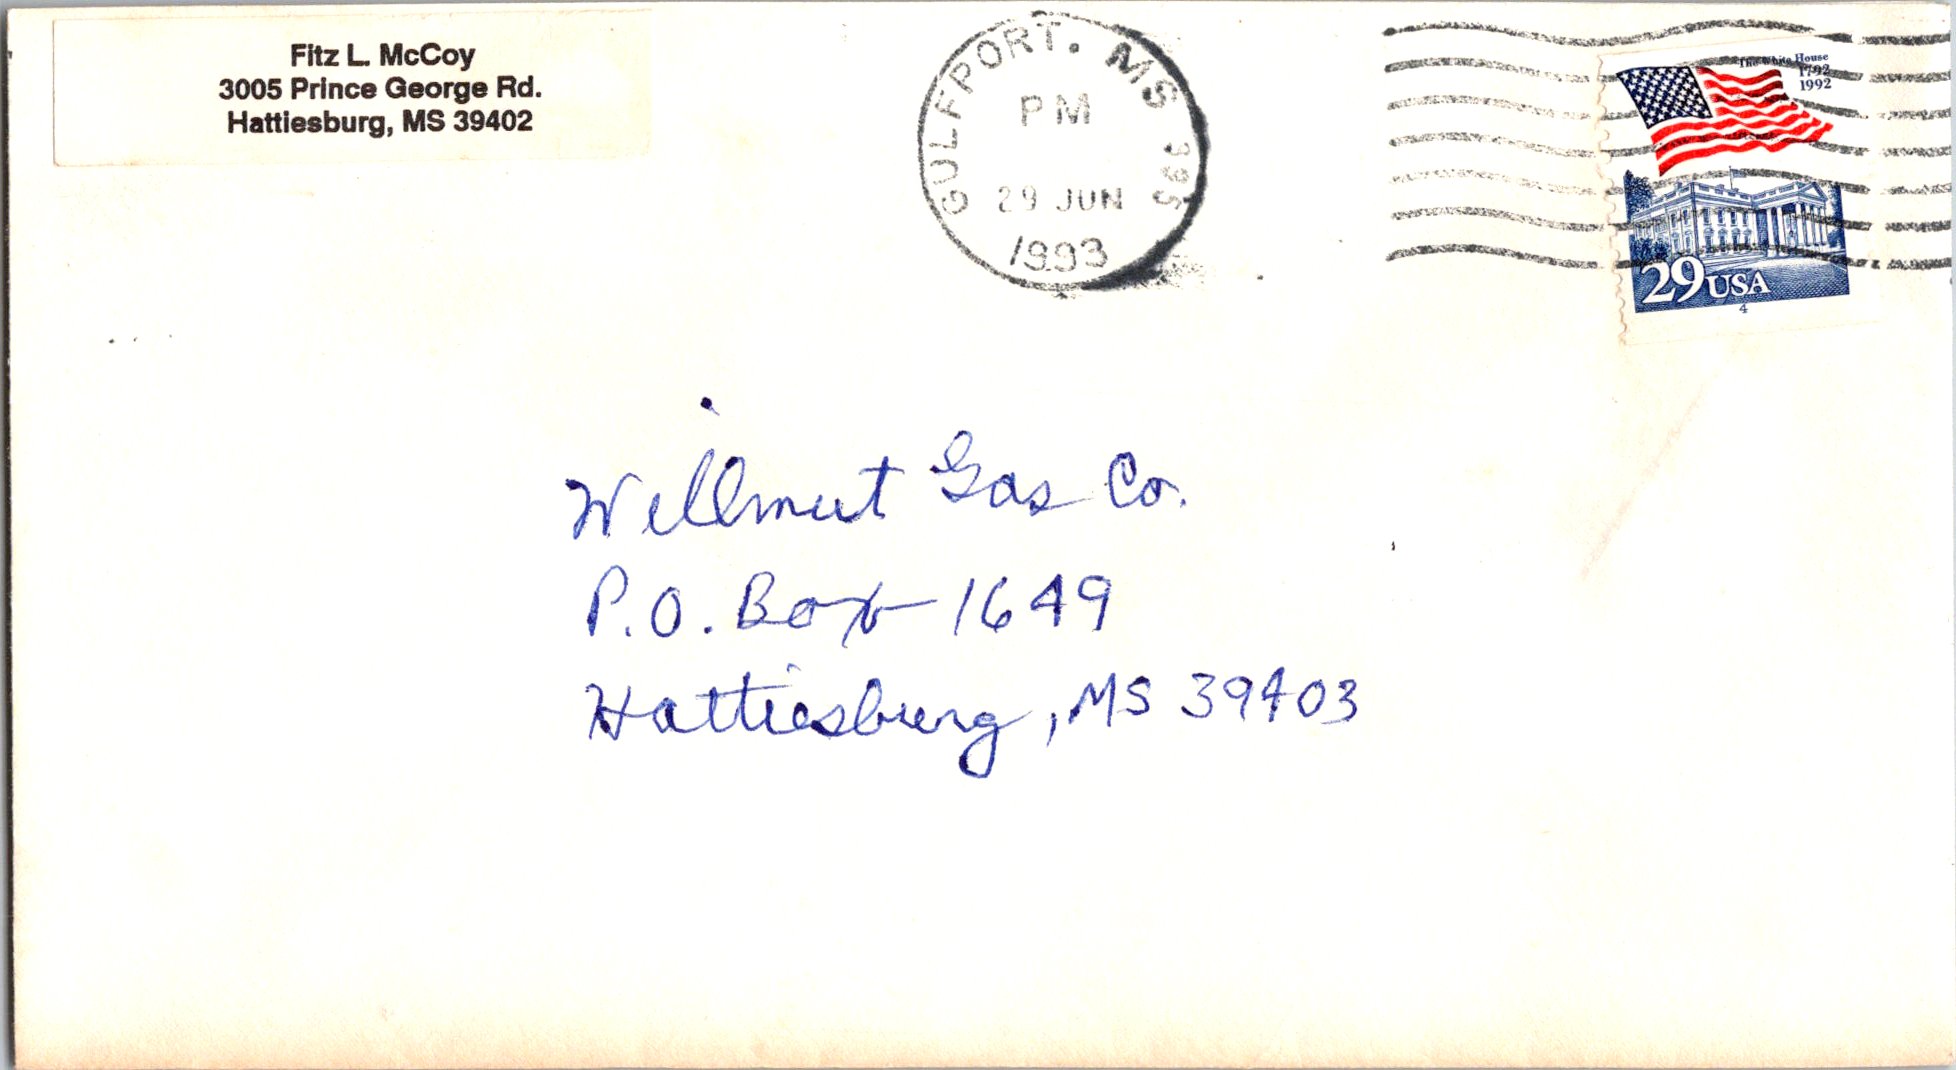 Fitz L. McCoy
3005 Prince George Rd.
Hattiesburg, MS 39402
GULFPORT, MS 395
PM
29 JUN
1993
The White House
1792
1992
29 USA
4
Willmut Gas Co.
P.O. Box 1649
Hattiesburg, MS 39403